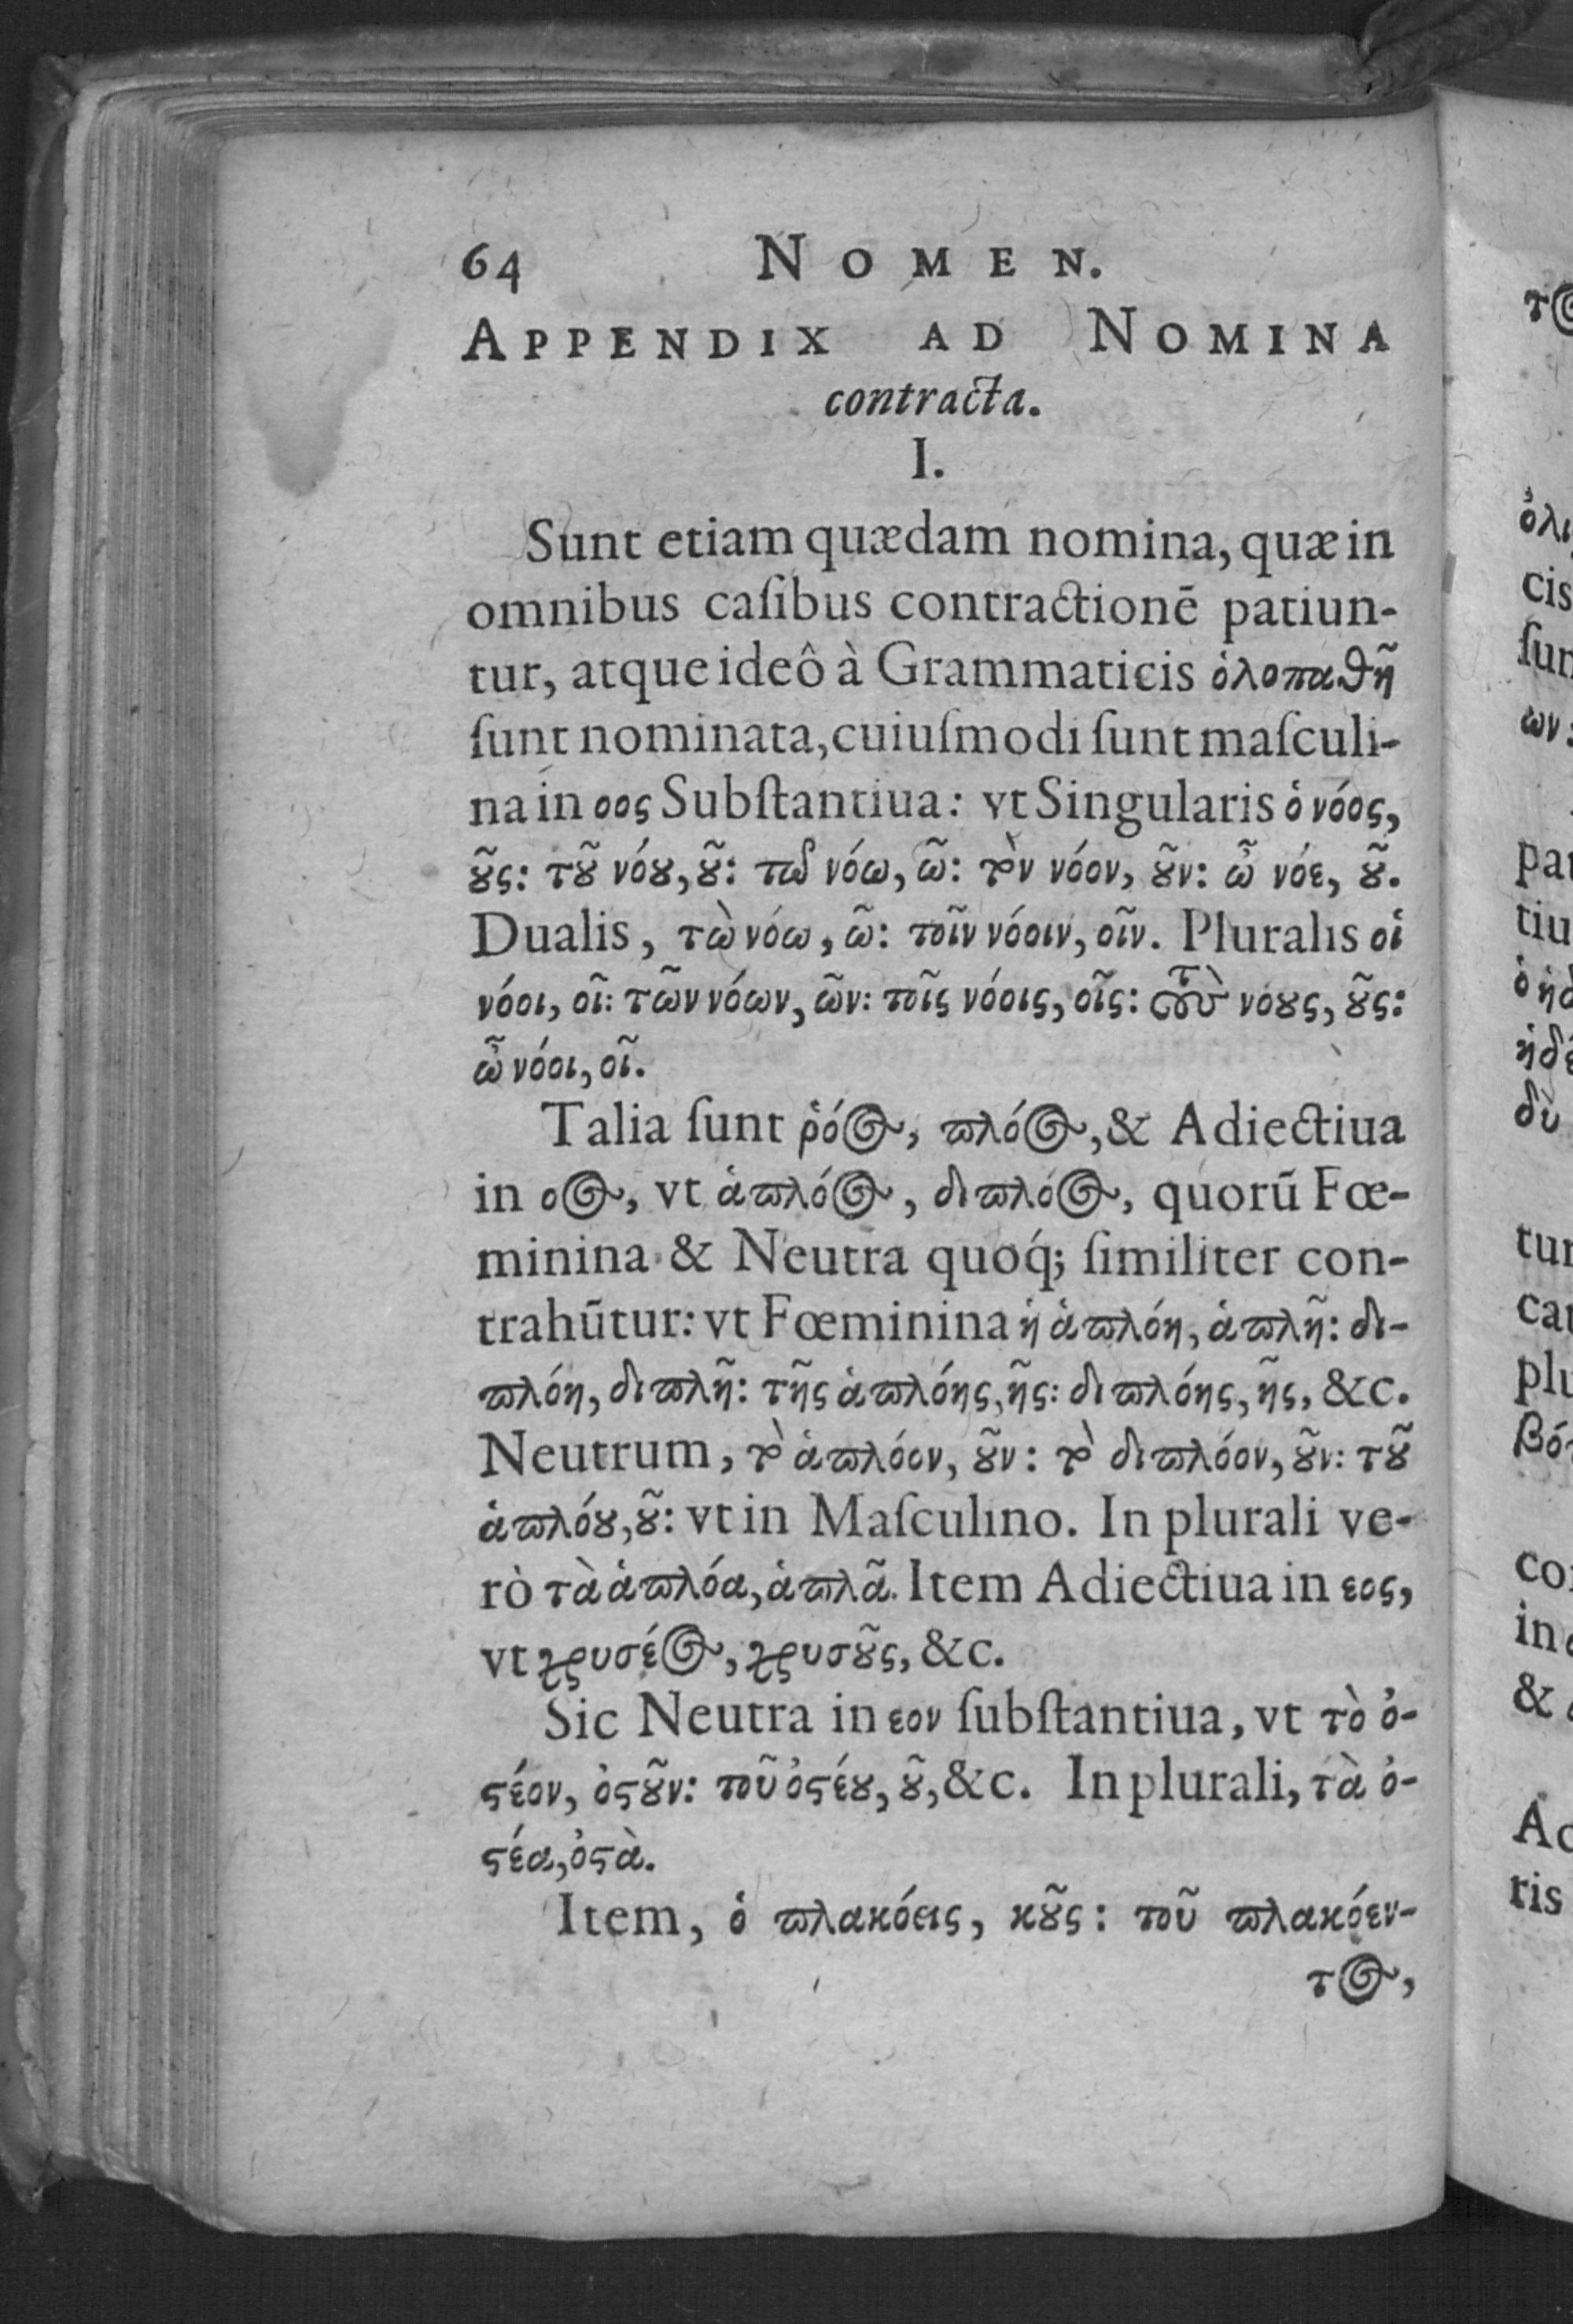 64 NOMEN.
APPENDIX AD NOMINA
contracta.
I.
Sunt etiam quædam nomina, quæ in
omnibus caſibus contractionē patiun-
tur, atque ideô à Grammaticis ὁλοπαθῆ
ſunt nominata, cuiuſmodi ſunt maſculi-
na in οος Subſtantiua: vt Singularis ὁ νόος,
ȣ͂ς: τȣ͂ νόȣ, ȣ͂: τῷ νόω, ῶ: τὸν νόον, ȣ͂ν: ὦ νόε, ȣ͂.
Dualis, τὼ νόω, ῶ: τοῖν νόοιν, οῖν. Pluralis οἱ
νόοι, οῖ: τῶν νόων, ῶν: τοῖς νόοις, οῖς: τοὺς νόȣς, ȣ͂ς:
ὦ νόοι, οῖ.
Talia ſunt ῥόος, πλόος, & Adiectiua
in οος, vt ἁπλόος, διπλόος, quorū Fœ-
minina & Neutra quoq́; ſimiliter con-
trahūtur: vt Fœminina ἡ ἁπλόη, ἁπλῆ: δι-
πλόη, διπλῆ: τῆς ἁπλόης, ῆς: διπλόης, ῆς, &c.
Neutrum, τὸ ἁπλόον, ȣ͂ν: τὸ διπλόον, ȣ͂ν: τȣ͂
ἁπλόȣ, ȣ͂: vt in Maſculino. In plurali ve-
rò τὰ ἁπλόα, ἁπλᾶ. Item Adiectiua in εος,
vt χρυσέος, χρυσȣ͂ς, &c.
Sic Neutra in εον ſubſtantiua, vt τὸ ὀ-
ϛέον, ὀϛȣ͂ν: τοῦ ὀϛέȣ, ȣ͂, &c. In plurali, τὰ ὀ-
ϛέα, ὀϛὰ.
Item, ὁ πλακόεις, κȣ͂ς: τοῦ πλακόεν-
τος,
τος
ὀλι
cis
ſun
ων:
par
tiu
ὁ ἡδ
ἡδέ
δὺ
tur
car
plu
βό
con
in
&
Ac
ris